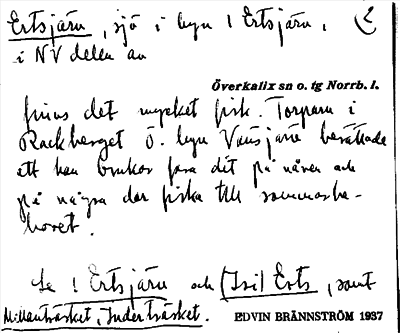 Ertsjärn, sjö i byn 1 Ertsjärn, 2
i NV delen av
Överkalix sn o. tg Norrb. l.
finns det mycket fisk. Torparn i
Rackberget Ö. byn Vansjärn berättade
att han brukar fara dit på våren och
på några dar fiska till sommarbe-
hovet.
Se 1 Ertsjärn och (Isi) Erts, samt
Mellanträsket, Inderträsket.
EDVIN BRÄNNSTRÖM 1937